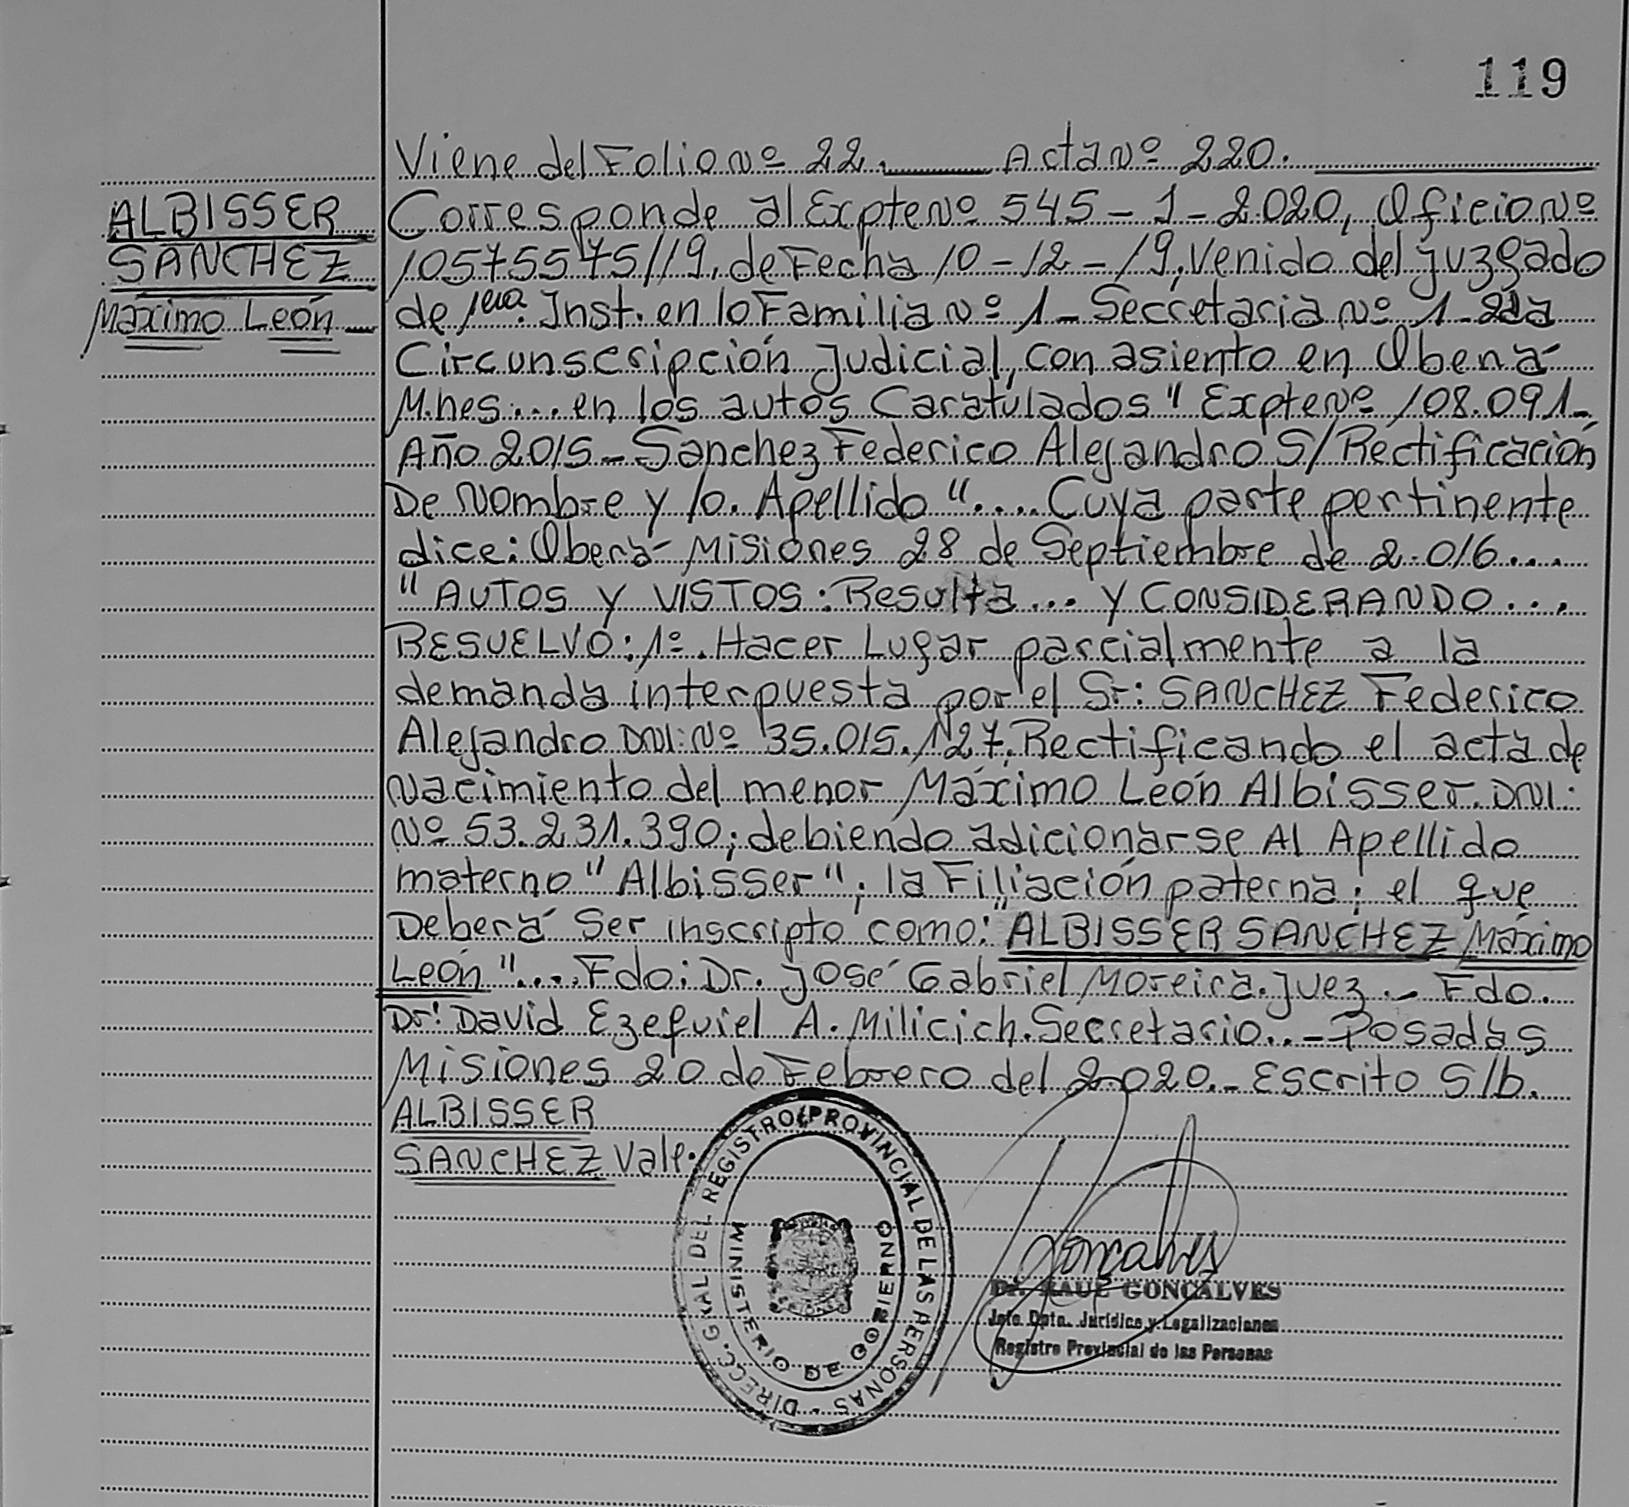 119
Viene del Folio Nº 22. Acta Nº 220.
ALBISSER
SANCHEZ
Máximo León
Corresponde al Expte Nº 545-1-2020, Oficio Nº
10575575/19, de Fecha 10-12-19, Venido del Juzgado
de 1era. Inst. en lo Familia Nº 1 - Secretaria Nº 1 - 2da
Circunscripción Judicial, con asiento en Oberá-
M.nes.... en los autos Caratulados "Expte Nº 108.091-
Año 2015 - Sanchez Federico Alejandro S/Rectificación
De Nombre y /o. Apellido".... Cuya parte pertinente
dice: Oberá- Misiones 28 de Septiembre de 2.016....
"AUTOS Y VISTOS: Resulta... Y CONSIDERANDO...
RESUELVO: 1º. Hacer Lugar parcialmente a la
demanda interpuesta por el Sr: SANCHEZ Federico
Alejandro DNI: Nº 35.015.127. Rectificando el acta de
Nacimiento del menor Máximo León Albisser. DNI:
Nº 53.231.390; debiendo adicionarse Al Apellido
materno "Albisser", la Filiación paterna; el que
Deberá Ser inscripto como: "ALBISSER SANCHEZ Máximo
León".... Fdo: Dr. José Gabriel Moreira. Juez.- Fdo.
Dr: David Ezequiel A. Milicich. Secretario..- Posadas
Misiones 20 de Febrero del 2020.- Escrito S/b.
ALBISSER
SANCHEZ Vale.
DIRECC. GRAL DEL REGISTRO PROVINCIAL DE LAS PERSONAS -
MINISTERIO DE GOBIERNO
Goncalves
Dr. RAUL GONCALVES
Jefe Dpto. Jurídico y Legalizaciones
Registro Provincial de las Personas